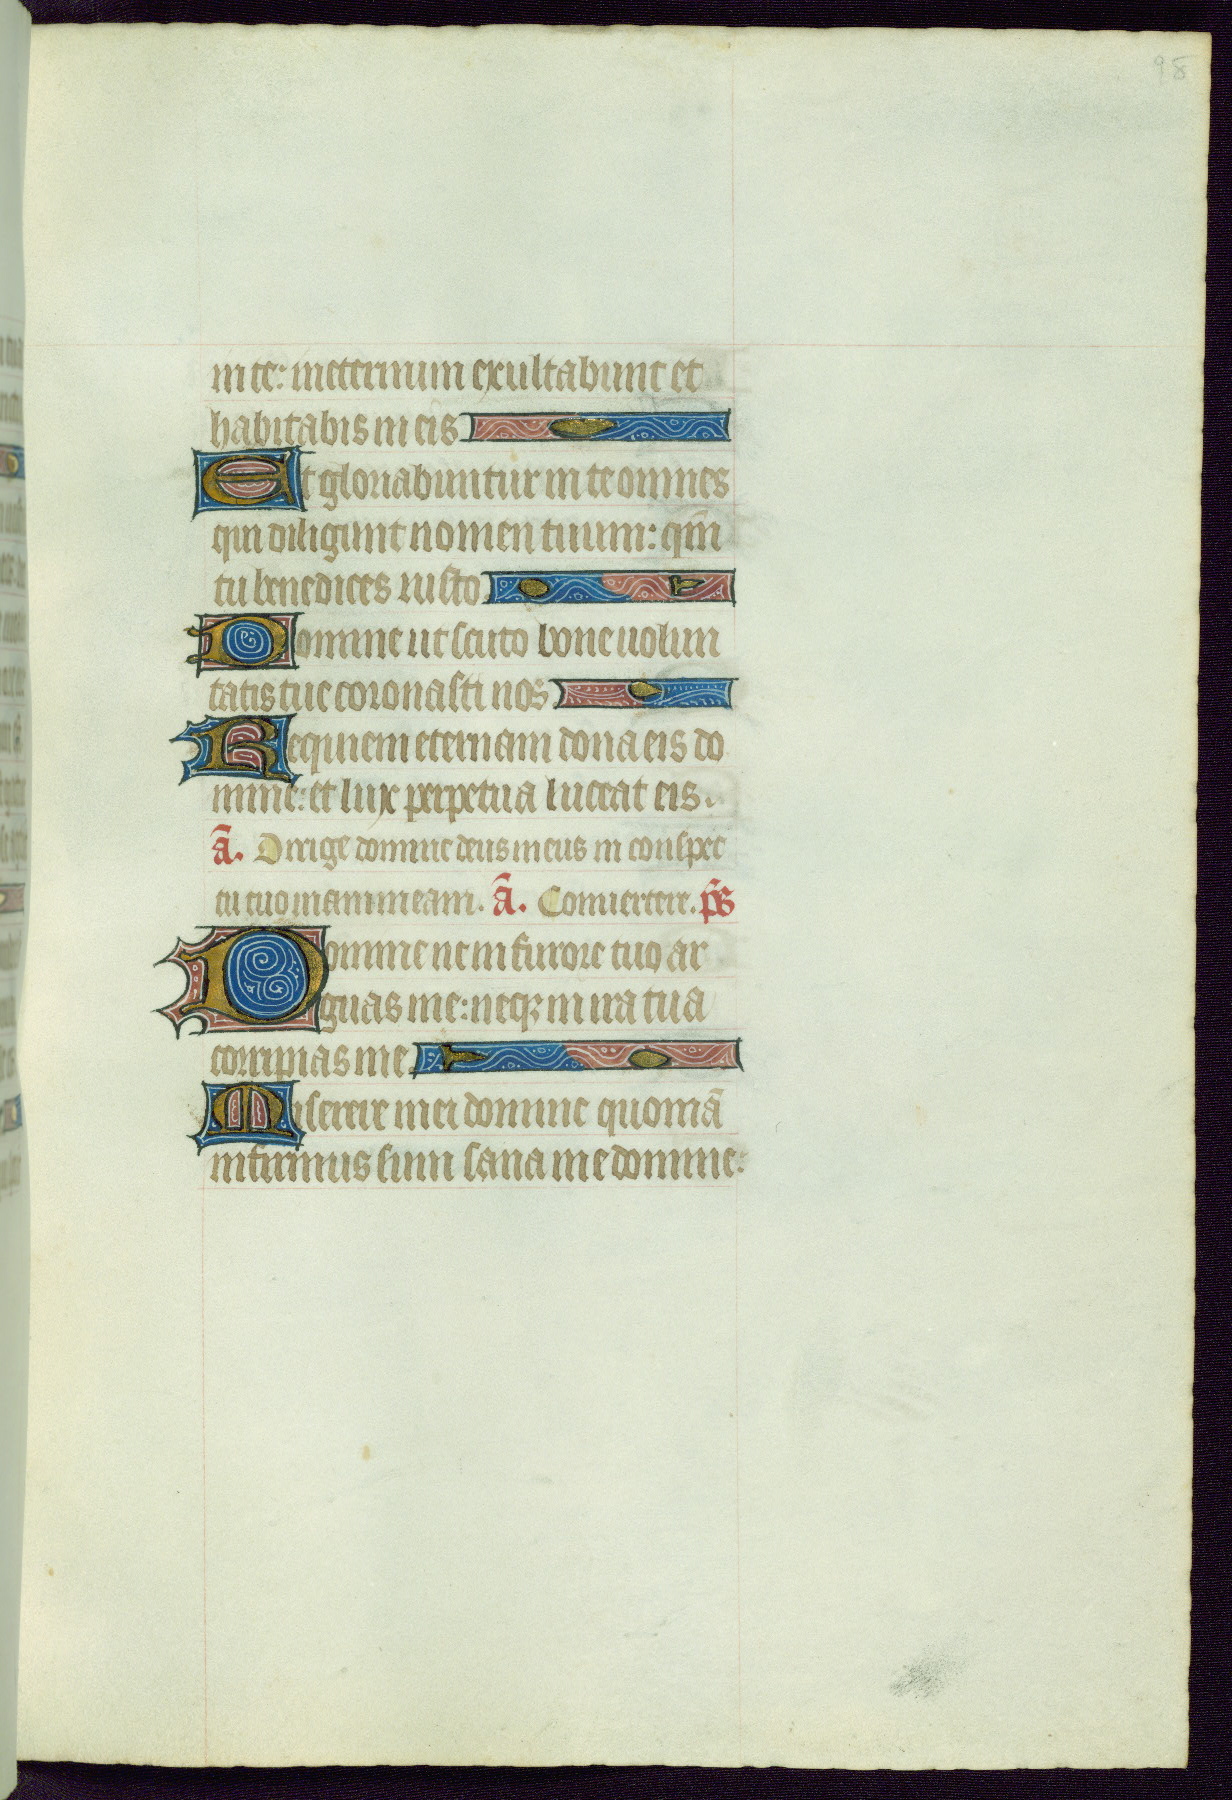 98
in te: in eternum exultabunt et
habitabis in eis
Et gloriabuntur in te omnes
qui diligunt nomen tuum: qm̄
tu benedices iusto
Domine ut scuto bone uolun
tatis tue coronasti nos
Requiem eternam dona eis do
mine: et lux perpetua luceat eis.
ā. Dirige domine deus meus in conspec
tu tuo uiam meam. ā. Conuertere. p̄s
Domine ne in furore tuo ar
guas me: neqꝫ in ira tua
corripias me
Miserere mei domine quoniā
infirmus sum sana me domine: